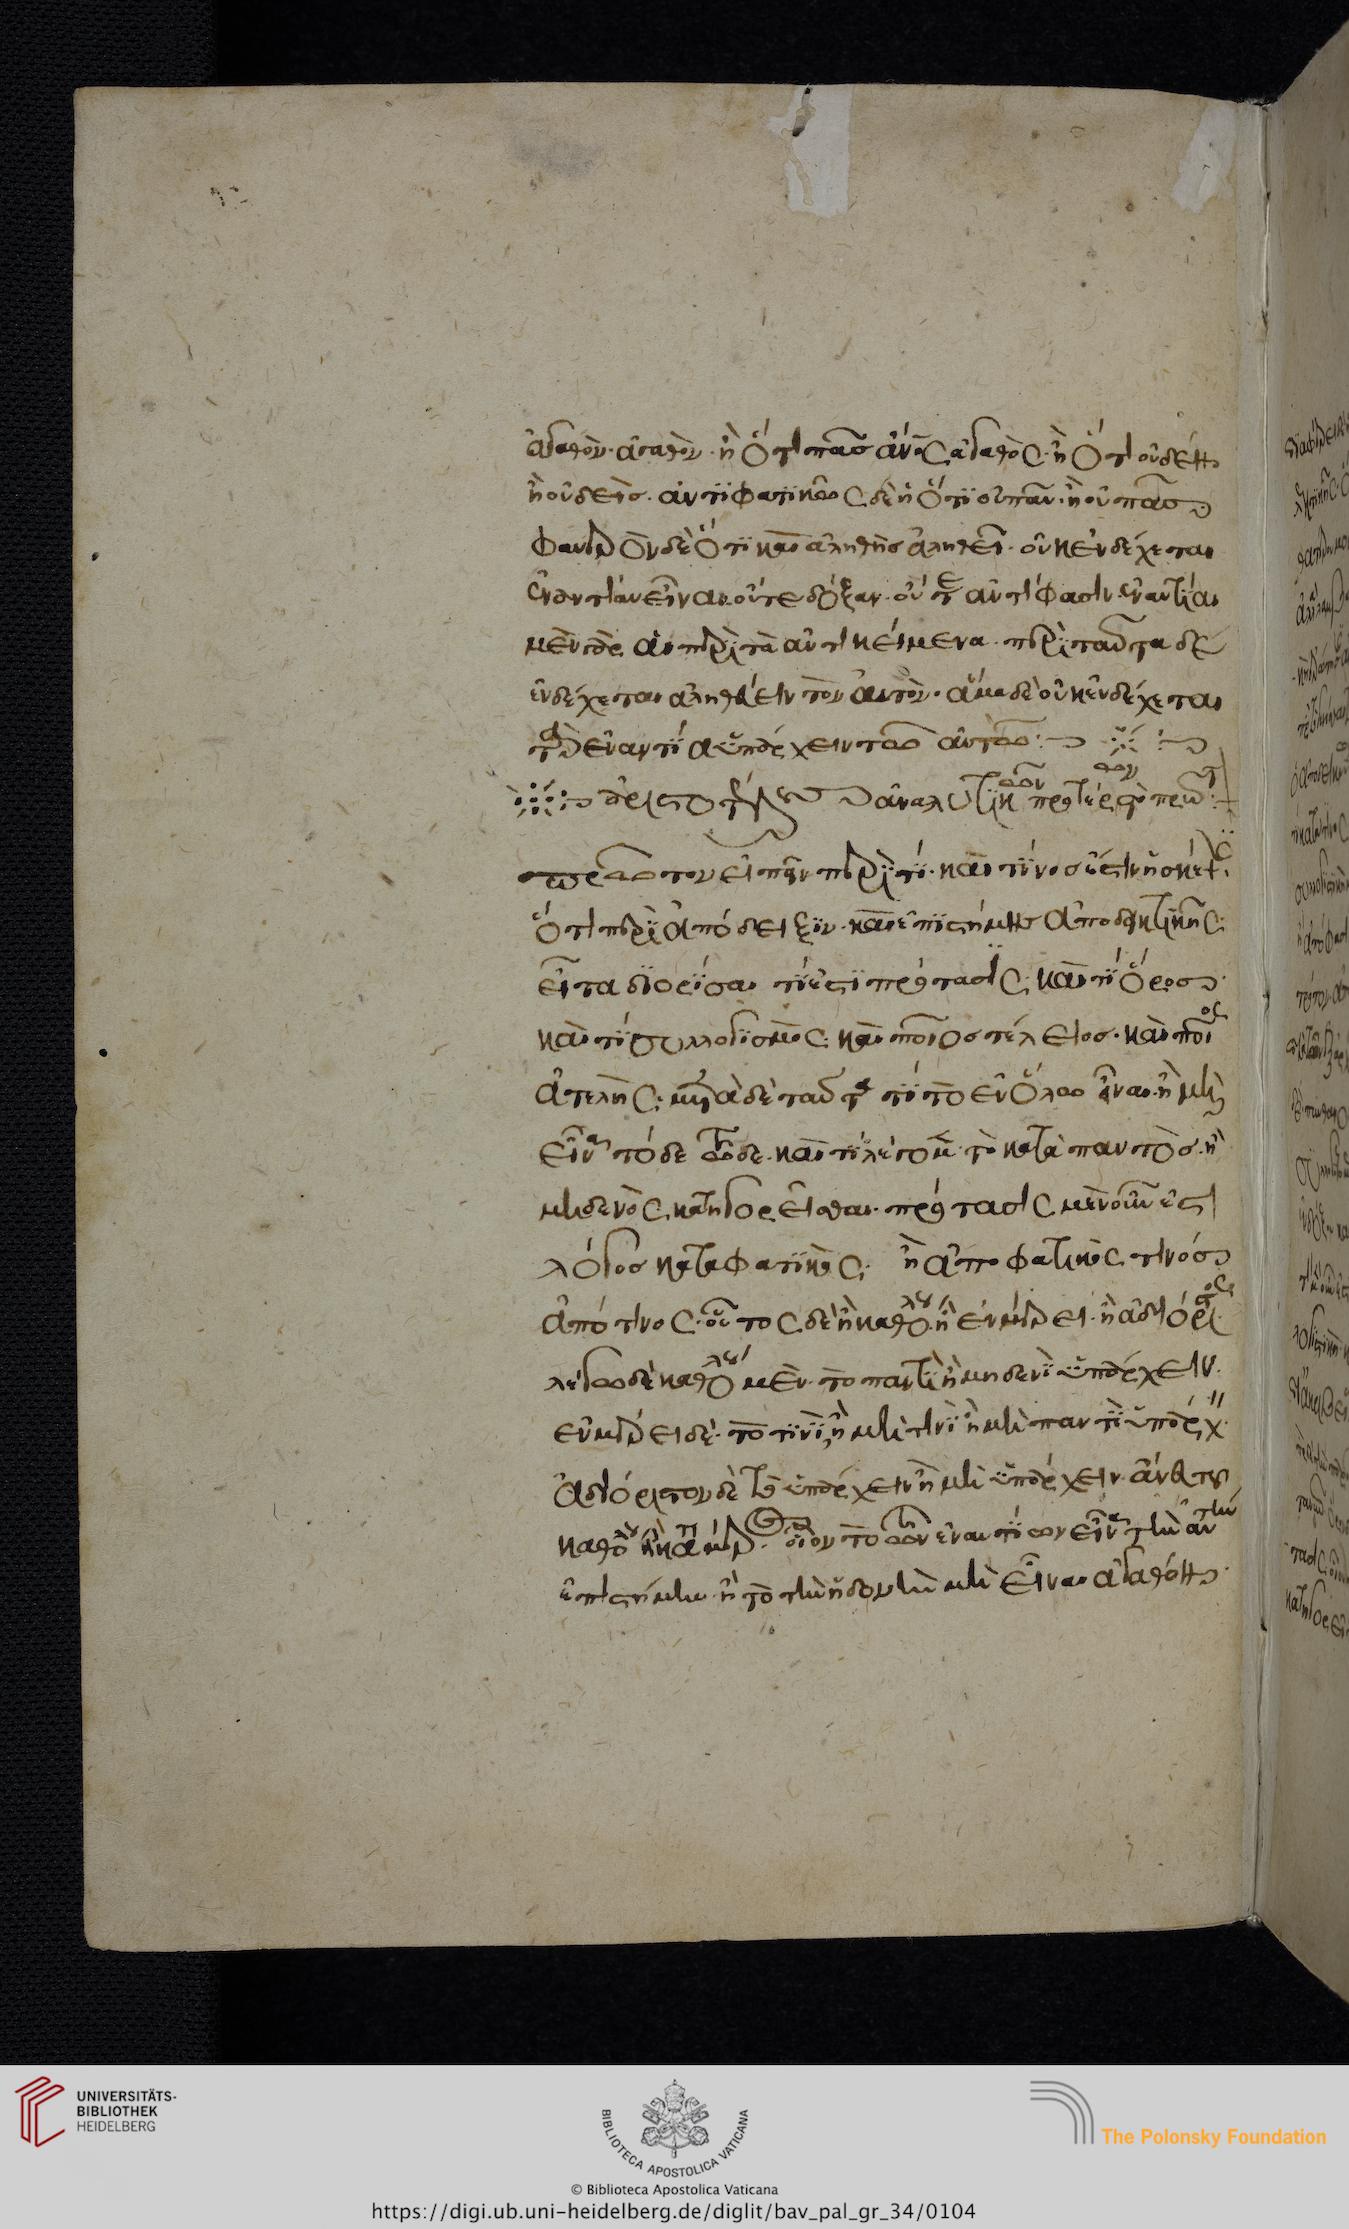 ἀγαθὸν ἀγαθόν· ἢ ὅτι πᾶσ ἄνος ἀγαθός· ἢ ὅτι οὐδὲν
ἢ οὐδεὶσ. ἀντιφατικῶς δὲ ἢ ὅτι οὐ πᾶν· ἢ οὐ πᾶσ
φανερὸν δὲ ὅτι καὶ ἀληθὴσ ἀληθεῖ· οὐκ ἐνδέχεται
ἐναντίαν εἶναι· οὔτε δόξαν· οὔτε ἀντίφασιν. ἐναντίαι
μὲν γὰρ αἱ περὶ τὰ ἀντικείμενα· περὶ ταῦτα δὲ
ἐνδέχεται ἀληθεύειν τὸν αὐτόν· ἅμα δὲ οὐκ ἐνδέχεται
τὰ ἐναντία ὑπάρχειν τῶ αὐτῶ:
ἀριστοτέλους ἀναλυτικῶν προτέρων τὸ πρῶτ
πρῶτον εἰπεῖν περὶ τί· καὶ τίνοσ ἐστὶν ἡ σκέψις
ὅτι περὶ ἀπόδειξιν· καὶ ἐπιστήμης ἀποδεικτικῆς·
εἶτα διορίσαι τί ἐστι πρότασις· καὶ τί ὅρος·
καὶ τί συλλογισμός· καὶ ποῖος τέλειος. καὶ ποῖος
ἀτελής· μετὰ δὲ ταῦτα τί τὸ ἐν ὅλω εἶναι· ἢ μὴ
εἶναι τόδε τῶδε. καὶ τί λέγομεν τὸ κατὰ παντὸσ. ἢ
μηδενὸς κατηγορεῖσθαι. πρότασις μὲν οὖν ἐστὶ
λόγοσ καταφατικὸς· ἢ ἀποφατικός τινόσ
ἀπό τινος. οὗτος δὲ ἢ καθόλου· ἢ ἐν μέρει. ἢ ἀδιόριστος
λέγω δὲ καθόλου μὲν. τὸ παντὶ ἢ μηδενὶ ὑπάρχειν.
ἐν μέρει δὲ· τὸ τινὶ, ἢ μὴ τινὶ ἢ μὴ παντὶ ὑπάρχ
ἀδιόριστον δὲ τὸ ὑπάρχειν ἢ μὴ ὑπάρχειν. ἄνευ τοῦ
καθόλου ἢ κατὰ μέρος. οἷον τὸ τῶν ἐναντίων εἶναι τὴν αὐτὴν
ἐπιστήμην· ἢ τὸ τὴν ἡδονὴν μὴ εἶναι ἀγαθόν
UNIVERSITÄTS-
BIBLIOTHEK
HEIDELBERG
BIBLIOTECA APOSTOLICA VATICANA
The Polonsky Foundation
© Biblioteca Apostolica Vaticana
https://digi.ub.uni-heidelberg.de/diglit/bav_pal_gr_34/0104